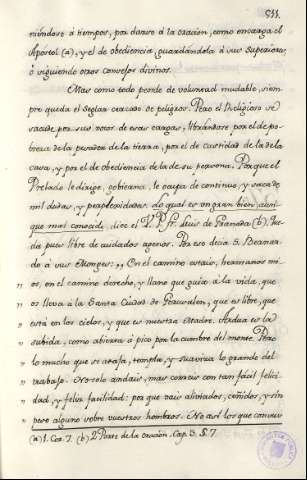 511.
niéndose à tiempos, por darse à la oracion, como encarga el
Apostol (a), y el de obediencia, guardándola à sus Superiores,
ò siguiendo otros consejos divinos.
Mas como todo pende de voluntad mudable, siem-
pre queda el Seglar cercado de peligros. Pero el Religioso se
sacude por sus votos de esas cargas, librándose por el de po-
breza de la pesadez de la tierra, por el de castidad de la de la
casa, y por el de obediencia de la de su persona. Porque el
Prelado le dirige, gobierna, le ocupa de continuo, y saca de
mil dudas, y perplexidades, lo qual es un gran bien, aun-
que mal conocido, dice el V. P. Fr. Luis de Granada (b). Que-
da pues libre de cuidados agenos. Por eso decia S. Bernar-
do à sus Monges: ,, En el camino estais, hermanos mi-
,, os, en el camino derecho, y llano que guia à la vida, que
,, os lleva à la Santa Ciudad de Jerusalen, que es libre, que
,, esta en los cielos, y que es nuestra Madre. Ardua es la
,, subida, como abierta à pico por la cumbre del monte. Pero
,, lo mucho que se ataja, templa, y suaviza lo grande del
,, trabajo. No solo andais, mas correis con tan facil felici-
,, dad, y feliz facilidad: por que vais aliviados, ceñidos, y sin
,, peso alguno sobre vuestros hombros. No asi los que
(a) 1. Cor. 7. (b) 2 Parte de la oracion. Cap. 3. §. 7.